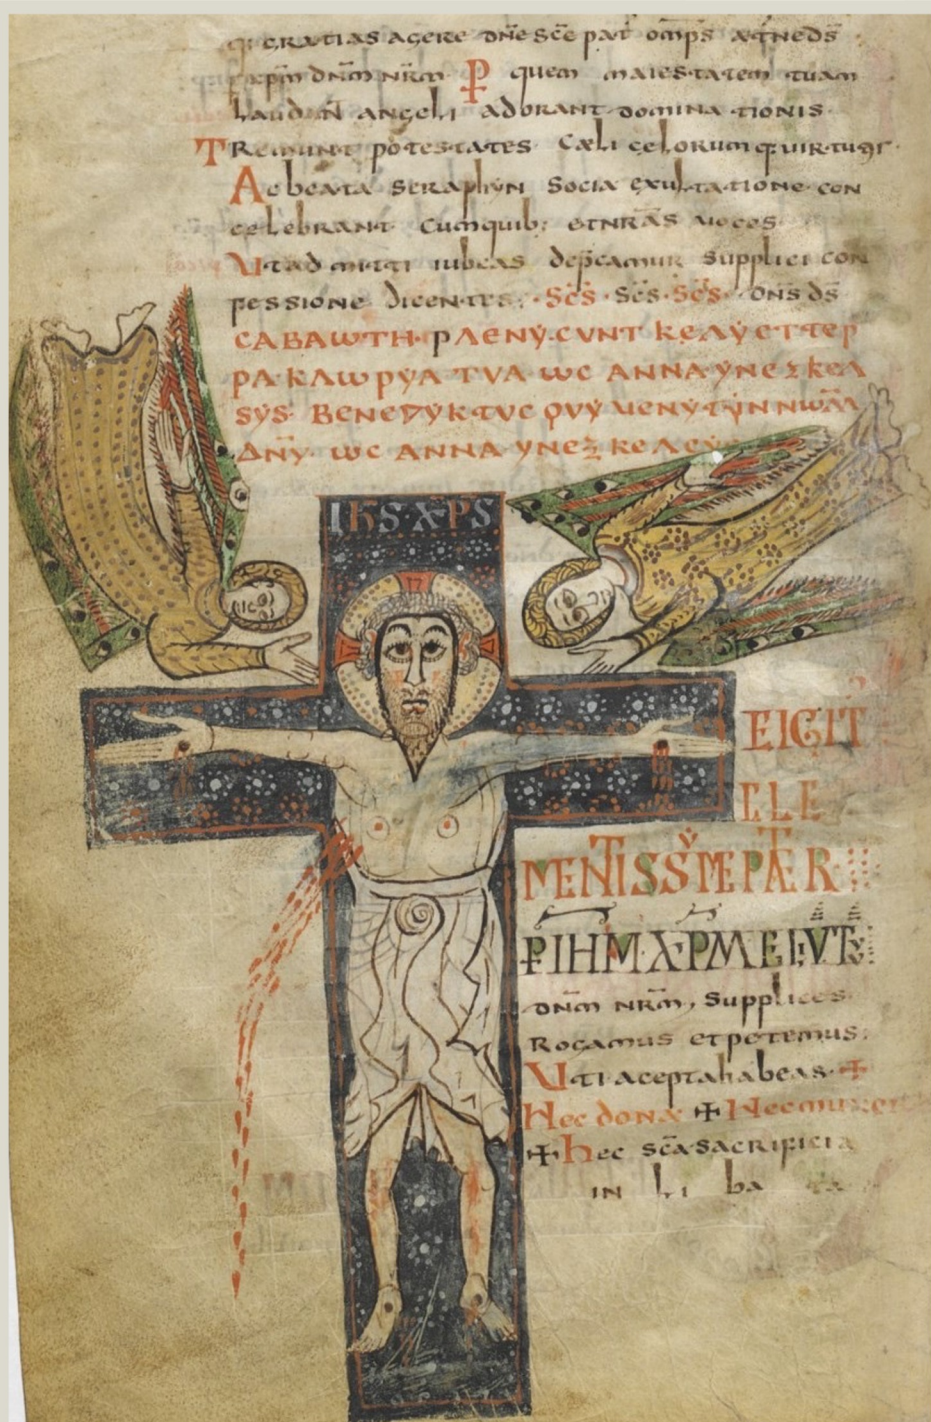 gratias agere dn̄e sc̄e pat om̄ps
xp̄m dn̄m nr̄m P quem maiestatem tuam
laud N angeli adorant dominationis
Tremunt potestates Cæli celorumq uirtu
Ac beata seraphyn Socia exultatione con
celebrant Cumquib; etnrās uoces
Utad mitti iubeas dep̄camur Supplici con
fessione dicentes; Sc̄s · Sc̄s · Sc̄s · dn̄s ds̄
CABAWTH·PΛENY·CVNT KEΛY ET TEP
PA·KΛWPYA·TVA·WC ANNA YNEZ KEΛ
SYS· BENEDYKTVC QVY UENYT YN NWM̄
ΔN̄Y· WC ANNA YNEZ KEΛCY
IHS·XPS
TEIGITE
CLE
MENTISSYME PATER
P IHM·XPM
dn̄m nr̄m, Supplices
Rogamus etpetemus
Uti aceptahabeas ✠
Hec dona ✠ Hec
✠ hec sc̄a sacrificia
in li ba ta